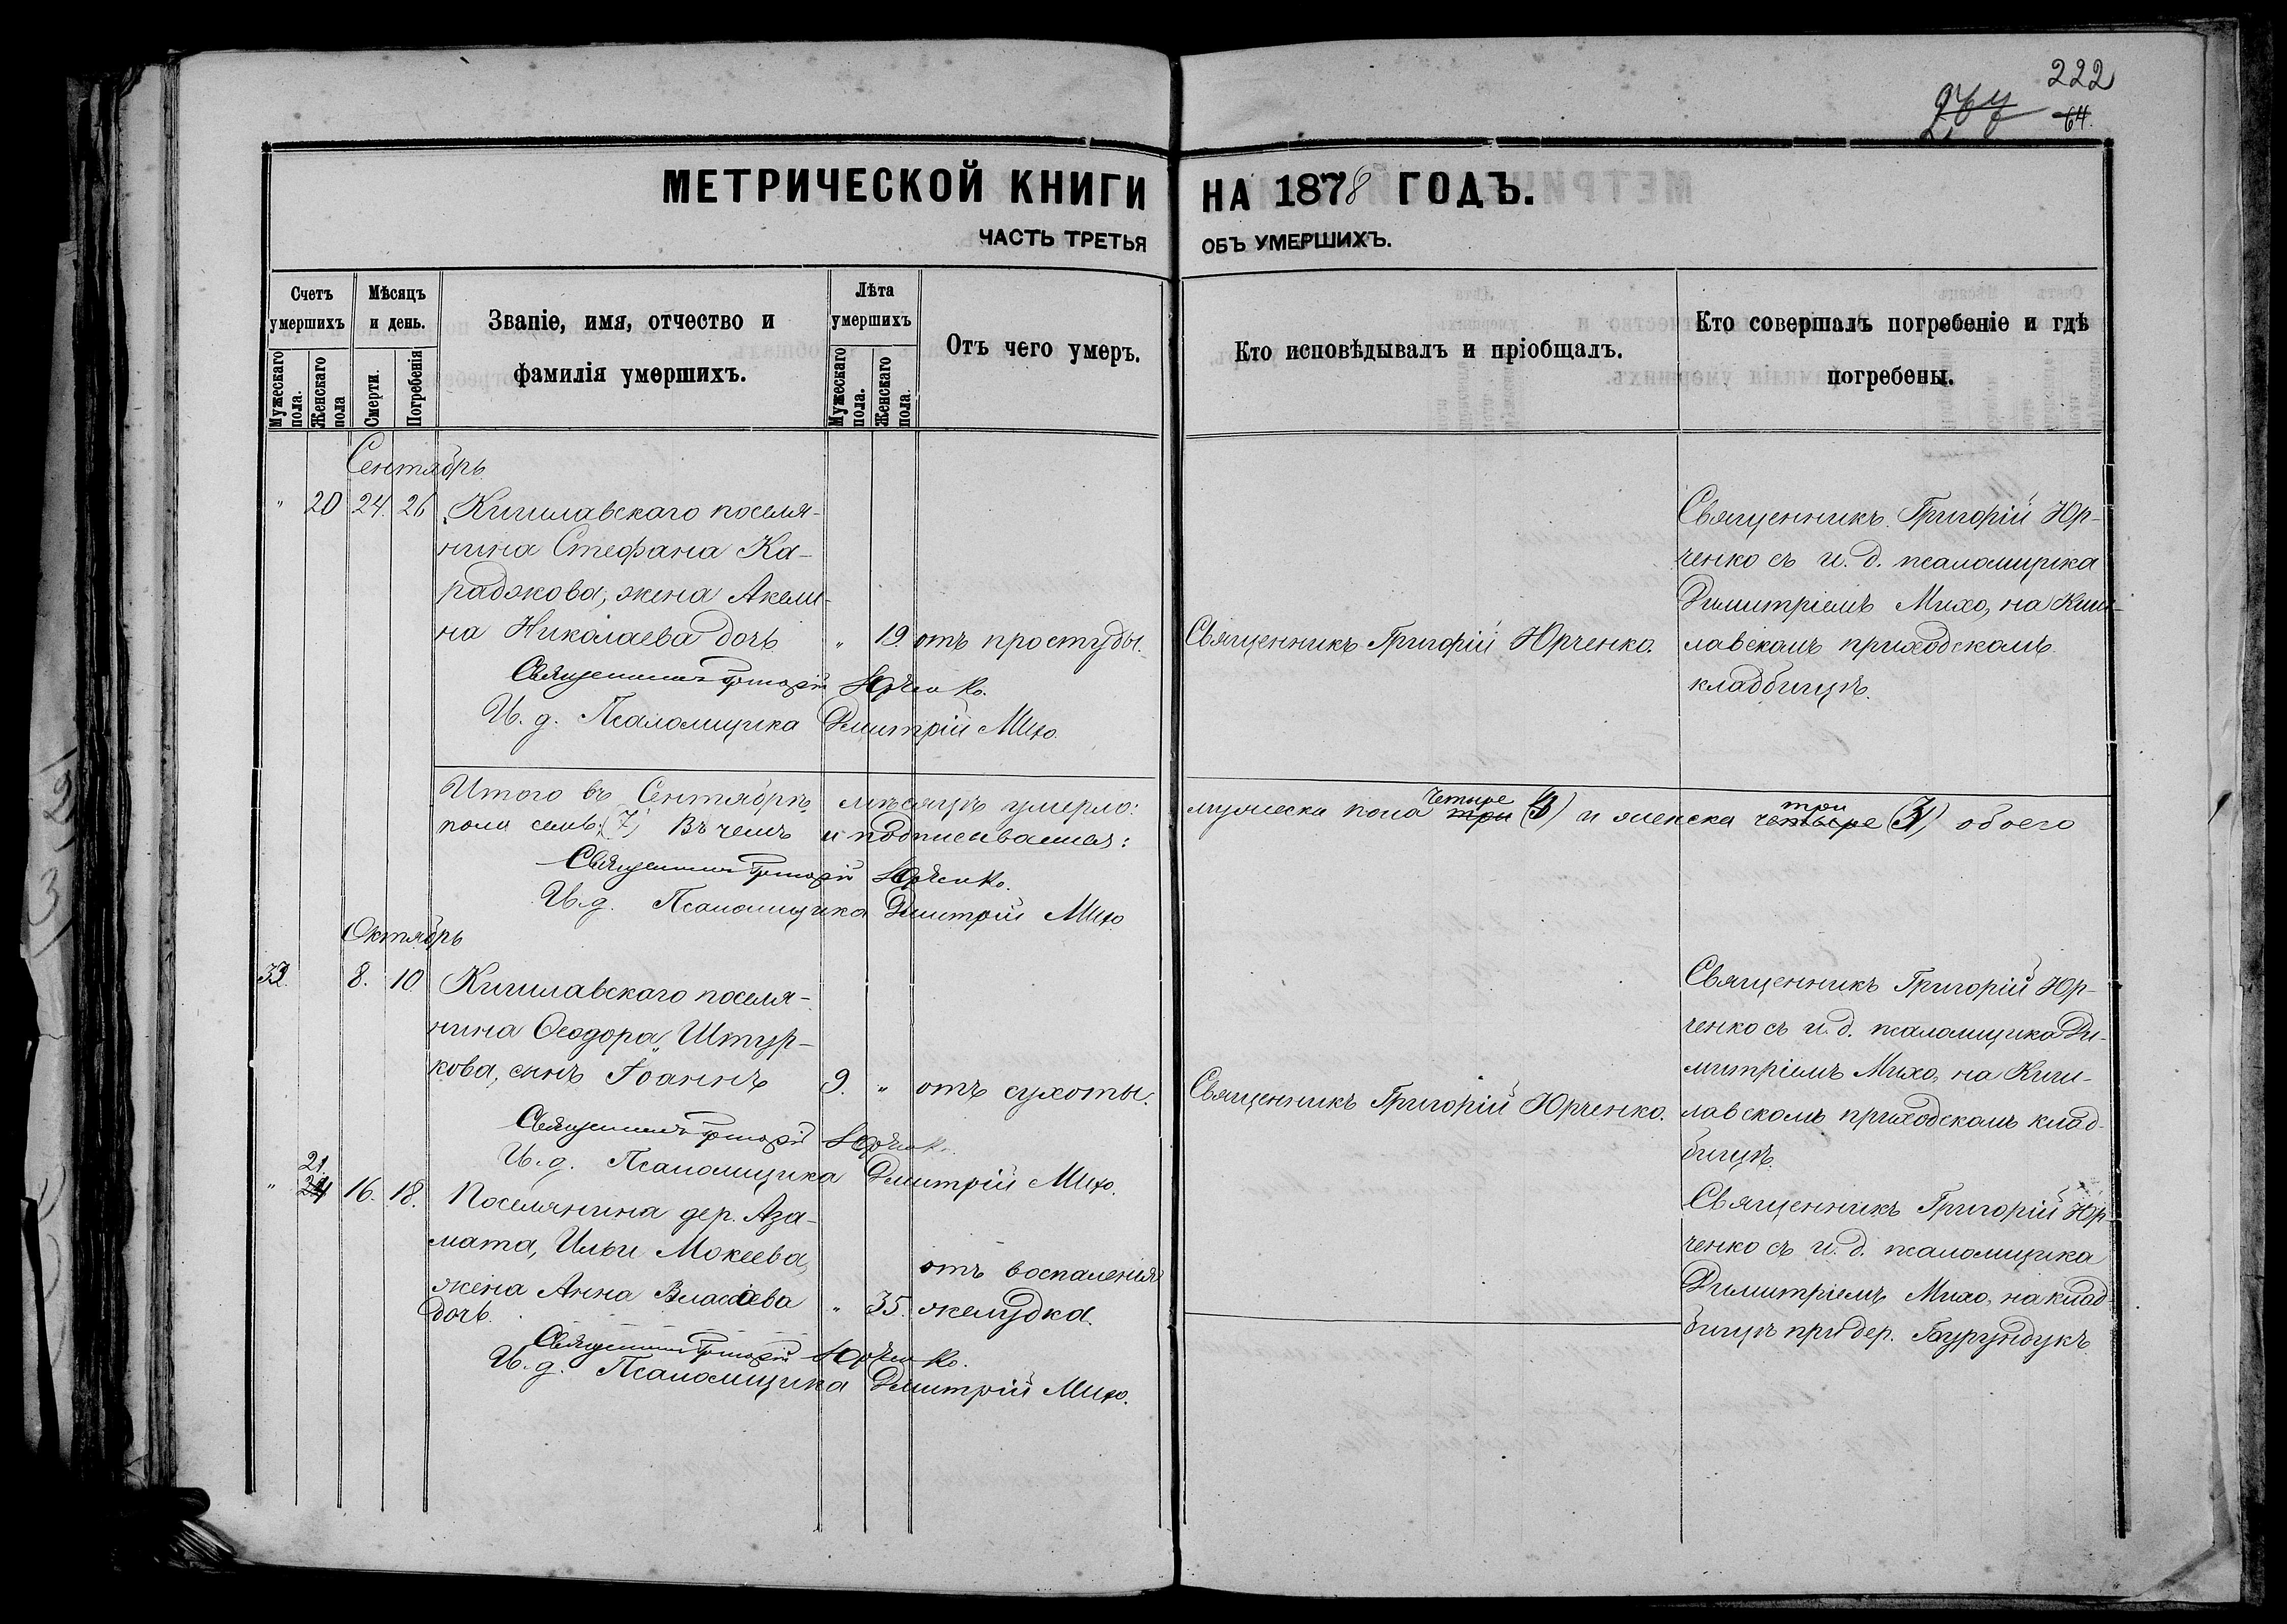 222
64.
МЕТРИЧЕСКОЙ КНИГИ НА 1878 ГОДЪ.
ЧАСТЬ ТРЕТЬЯ ОБЪ УМЕРШИХЪ.
Счетъ умершихъ
Мужескаго пола.
Женскаго пола
Мѣсяцъ и день.
Смерти.
Погребенія
Званіе, имя, отчество и
фамилія умершихъ.
Лѣта умершихъ
Мужескаго пола.
Женскаго пола.
Отъ чего умеръ.
Кто исповѣдывалъ и пріобщалъ.
Кто совершалъ погребеніе и гдѣ
погребены.
Сентябрь
" 20 24. 26 Кигилавскаго поселя-
нина Стефана Ка-
раджова, жена Акели-
на Николаева дочь " 19. отъ простуды.
Священникъ Григорій Юрченко.
Священникъ Григорій Юр-
ченко съ и. д. псаломщика
Димитріемъ Михо, на Киги-
лавскомъ приходскомъ
кладбищѣ.
Священникъ Григорій Юрченко.
И. д. Псаломщика Дмитрій Михо.
Итого въ Сентябрѣ мѣсяцѣ умерло: мужеска пола четыре три (3) и женска три четыре (3) обоего
пола семь (7) Въ чемъ и подписываемся:
Священникъ Григорій Юрченко.
И. д. Псаломщика Дмитрій Михо
Октябрь
33. 8. 10 Кигилавскаго поселя-
нина Ѳеодора Штур-
кова, сынъ Іоаннъ 9. " отъ сухоты.
Священникъ Григорій Юрченко.
Священникъ Григорій Юр-
ченко съ и. д. псаломщика Ди-
митріемъ Михо, на Киги-
лавскомъ приходскомъ клад-
бищѣ.
Священникъ Григорій Юрченко.
И. д. Псаломщика Дмитрій Михо.
21.
" 24 16. 18. Поселянина дер. Аза-
мата, Ильи Мокеева,
жена Анна Власіева
дочь. " 35. отъ воспаленія
желудка.
Священникъ Григорій Юр-
ченко съ и. д. псаломщика
Димитріемъ Михо, на клад-
бищѣ при дер. Бурундукъ.
Священникъ Григорій Юрченко.
И. д. Псаломщика Дмитрій Михо.